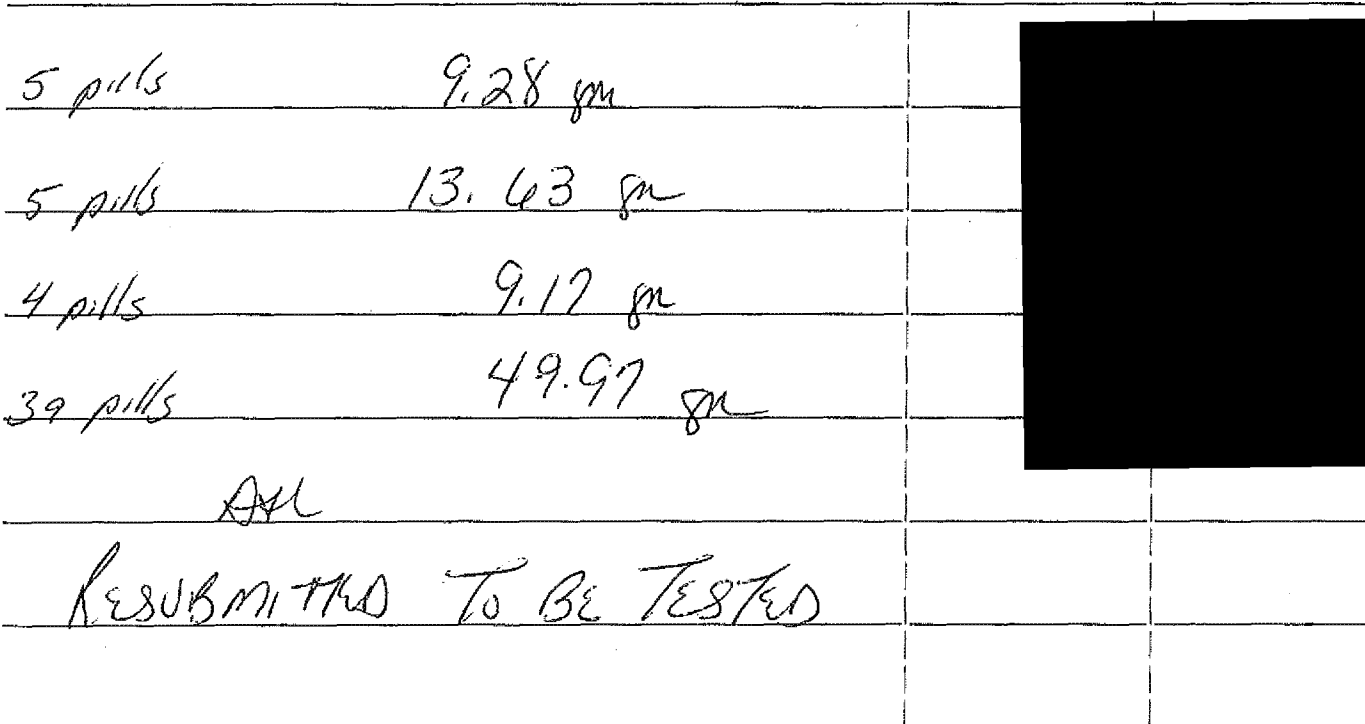 5 pills 9.28 gm
5 pills 13.63 gm
4 pills 9.17 gm
39 pills 49.97 gm
RESUBMITTED TO BE TESTED